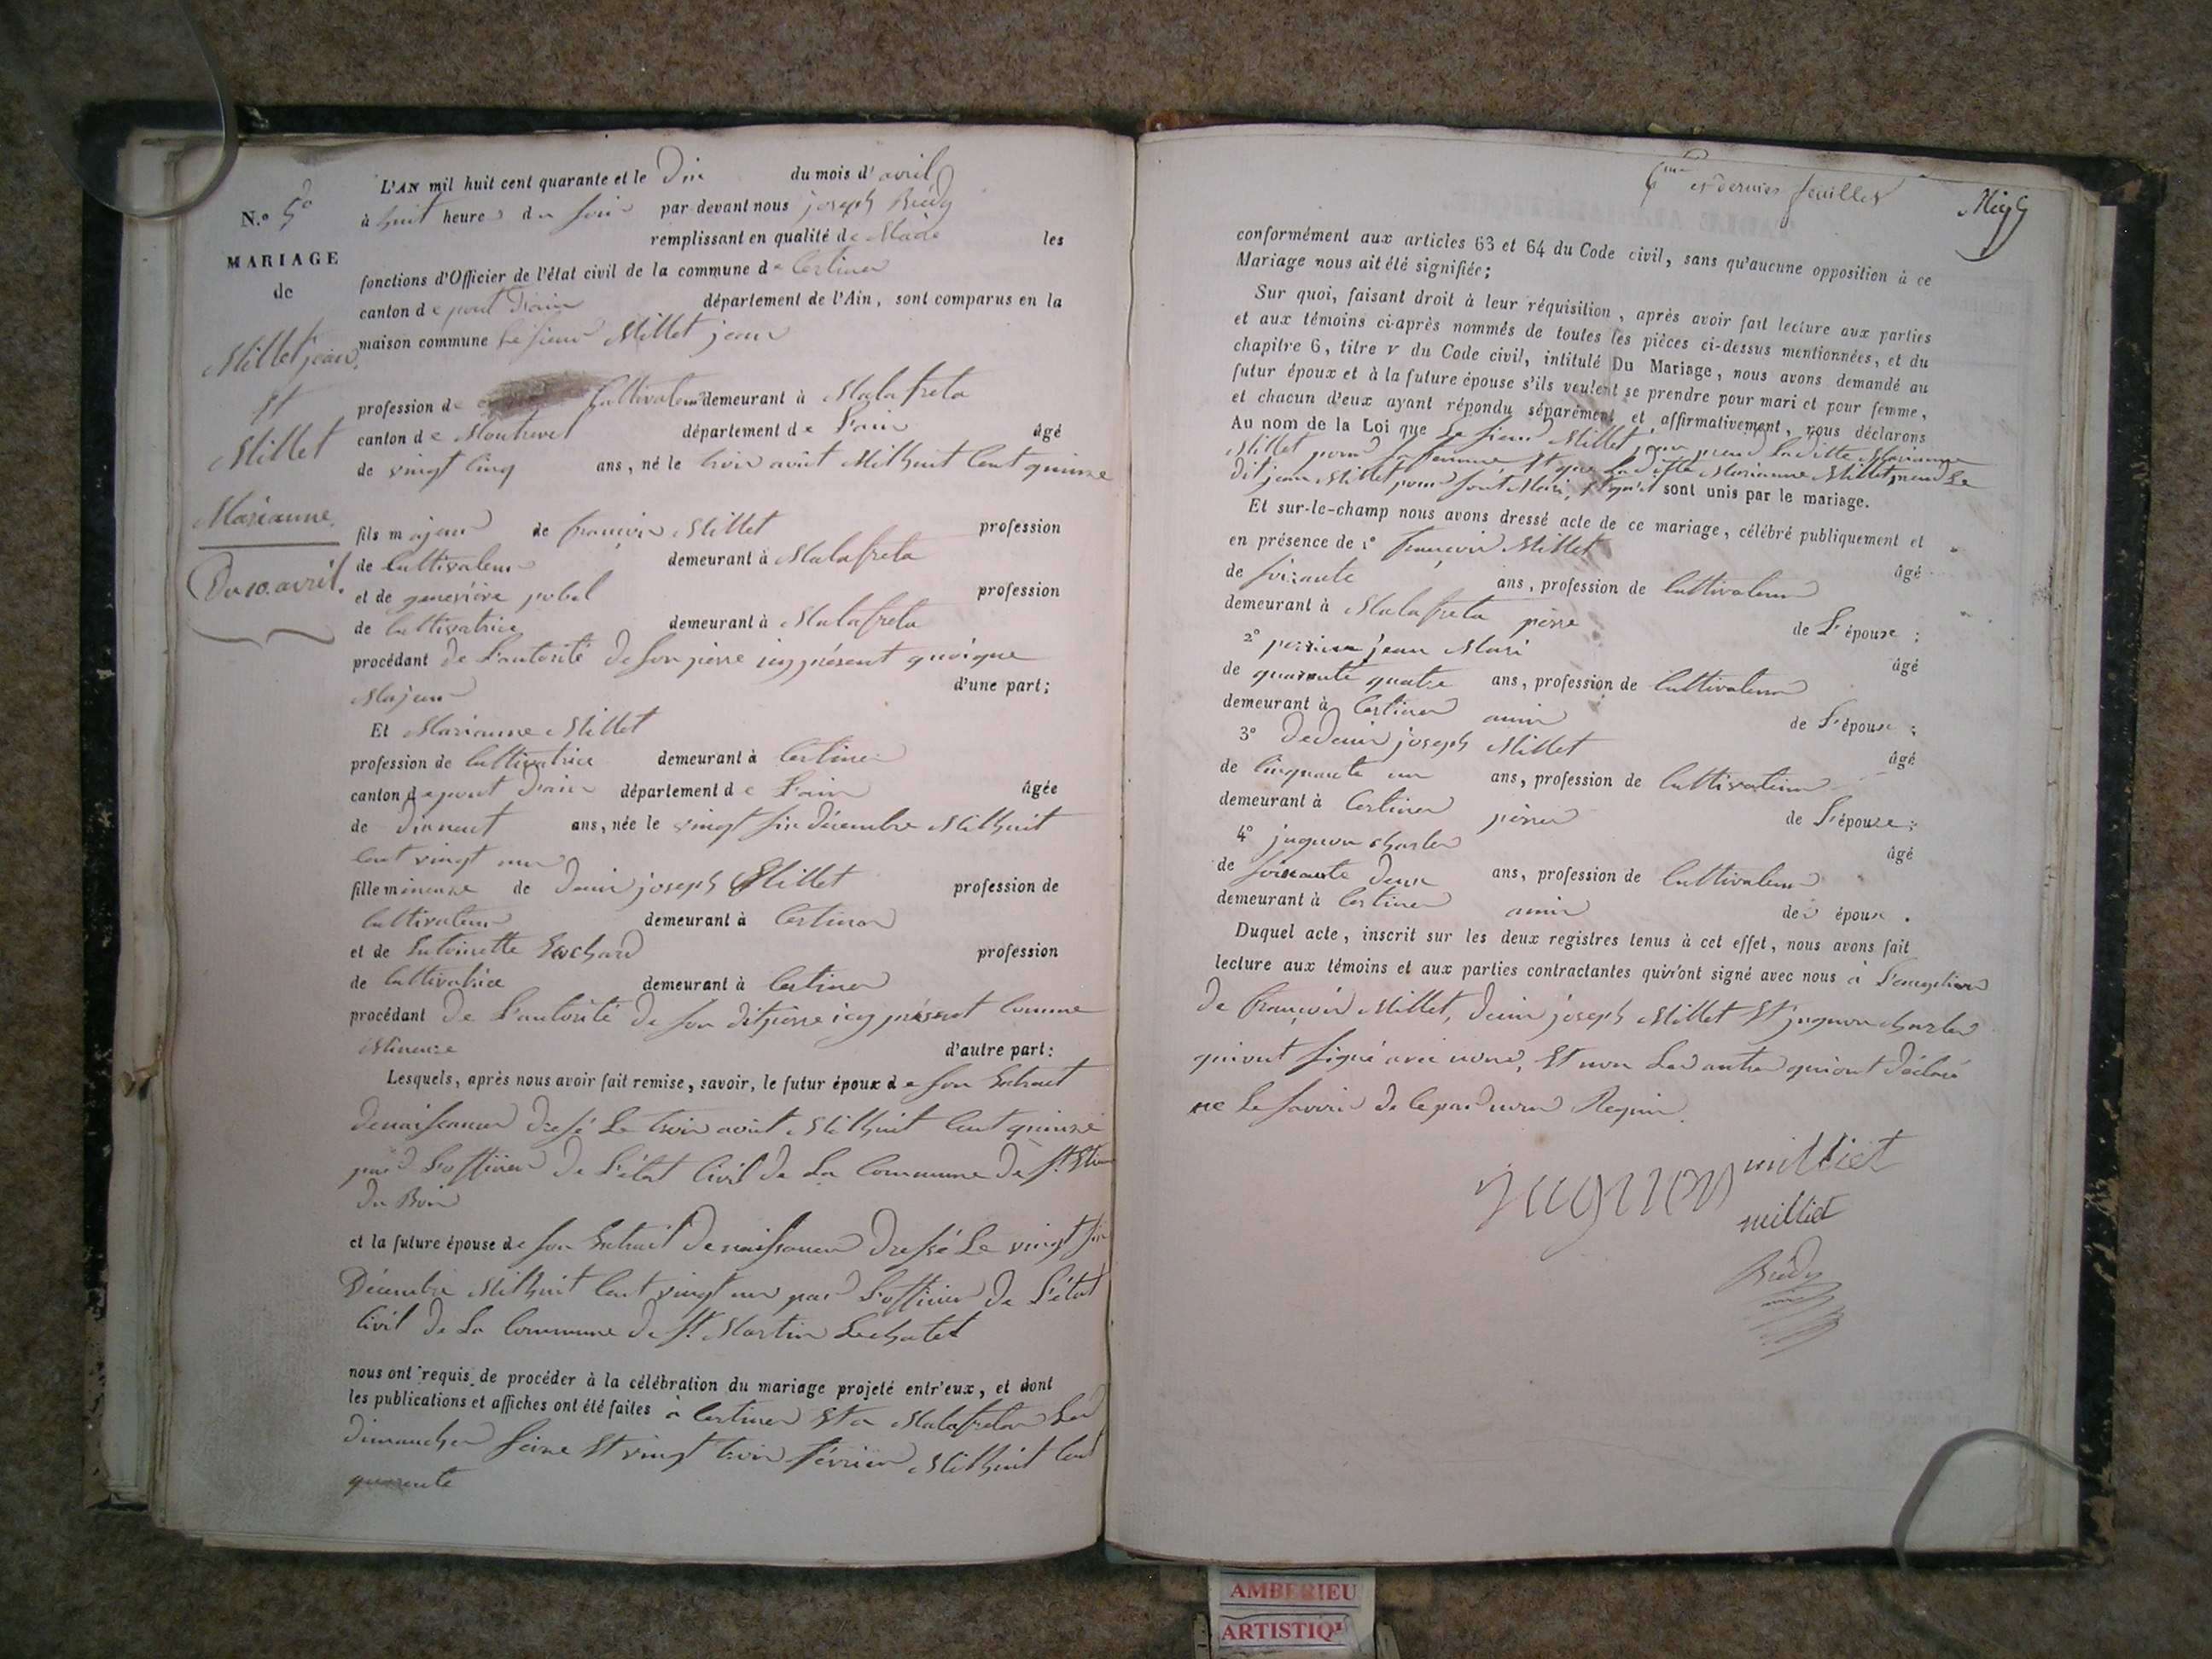 N.º 5º
MARIAGE
de
Millet jean
Et
Millet
Marianne
Du 10 avril.
L'AN mil huit cent quarante et le Dix du mois d'avril
à huit heures du soir par-devant nous joseph
remplissant en qualité de Maire les
fonctions d'Officier de l'état civil de la commune de Certines
canton de pont Dain département de l'Ain, sont comparus en la
maison commune Le sieur Millet jean
profession de Cultivateur demeurant à Malafreta
canton de Montrevel département de L'ain âgé
de vingt cinq ans, né le trois août Mil huit Cent quinze
fils majeur de françois Millet profession
de Cultivateur demeurant à Malafreta
et de geneviève pobel profession
de Cultivatrice demeurant à Malafreta
procédant De L'autorité De son pierre icy présent quoique
Majeur d'une part;
Et Marianne Millet
profession de Cultivatrice demeurant à Certines
canton de pont Dain département de L'ain âgée
de Dixneuf ans, née le vingt six Décembre Mil huit
Cent vingt un
fille mineure de Denis joseph Millet profession de
Cultivateur demeurant à Certines
et de Entoinette profession
de Cultivatrice demeurant à Certines
procédant De L'autorité De son dit pierre icy présent Comme
Mineure d'autre part:
Lesquels, après nous avoir fait remise, savoir, le futur époux de son Extrait
De naissance Dressé Le trois août Mil huit Cent quinze
par L'officier De L'état Civil De La Commune De St. Etienne
Du Bois
et la future épouse de son Extrait De naissance Dressé Le vingt six
Décembre Mil huit Cent vingt un par L'officier De L'état
Civil De La Commune De St. Martin Lechatel
nous ont requis de procéder à la célébration du mariage projeté entr'eux, et dont
les publications et affiches ont été faites à Certines Et a Malafreta Les
Dimanches seize Et vingt trois février Mil huit Cent
quarante
6me et dernier feuillet
conformément aux articles 63 et 64 du Code civil, sans qu'aucune opposition à ce
Mariage nous ait été signifiée;
Sur quoi, faisant droit à leur réquisition, après avoir fait lecture aux parties
et aux témoins ci-après nommés de toutes les pièces ci-dessus mentionnées, et du
chapitre 6, titre v du Code civil, intitulé Du Mariage, nous avons demandé au
futur époux et à la future épouse s'ils veulent se prendre pour mari et pour femme,
et chacun d'eux ayant répondu séparément et affirmativement, nous déclarons
Au nom de la Loi que Le sieur Millet jean prend La ditte Marianne
Millet pour sa femme Et que La ditte Marianne Millet prend Le
Dit jean Millet pour sont Mari, Et qu'il sont unis par le mariage.
Et sur-le-champ nous avons dressé acte de ce mariage, célébré publiquement et
en présence de 1º françois Millet âgé
de soixante ans, profession de Cultivateur
demeurant à Malafreta pierre de L'époux;
2º jean Mari âgé
de quarante quatre ans, profession de Cultivateur
demeurant à Certines amis de L'époux;
3º De Denis joseph Millet âgé
de Cinquante un ans, profession de Cultivateur
demeurant à Certines pierre de L'épouse;
4º jugnon charles âgé
de soixante Deux ans, profession de Cultivateur
demeurant à Certines amis des époux.
Duquel acte, inscrit sur les deux registres tenus à cet effet, nous avons fait
lecture aux témoins et aux parties contractantes qui n'ont signé avec nous à L'exception
De françois Millet, Denis joseph Millet Et jugnon charles
qui ont signé avec nous, Et non Les autres qui ont Déclaré
ne Le savoir De Ce par nous Requis.
jugnon milliet
milliet
AMBERIEU
ARTISTIQ